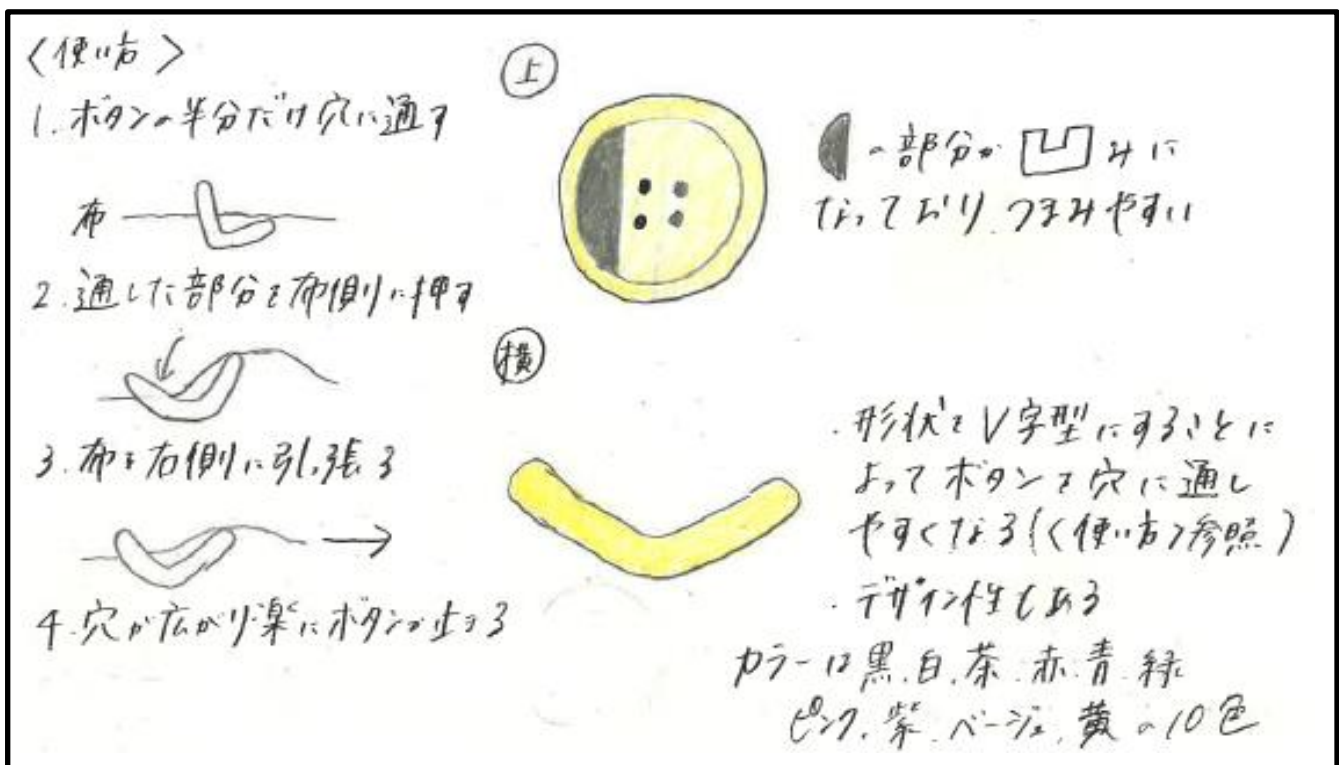 〈使い方〉
1.ボタンの半分だけ穴に通す
布
2.通した部分を布側に押す
3.布を右側に引っ張る
4.穴が広がり楽にボタンが止まる
上
の部分が凹みに
なっており、つまみやすい
横
・形状をV字型にすることに
よってボタンを穴に通し
やすくなる(〈使い方〉参照)
・デザイン性もある
カラーは黒.白.茶.赤.青.緑
ピンク.紫.ベージュ.黄の10色